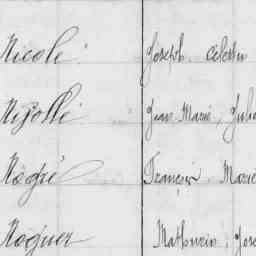 Nicole Joseph Célestin
Nizolle Jean Marie, Jul
Nogré François Marie
Noguer Mathurin, Jos